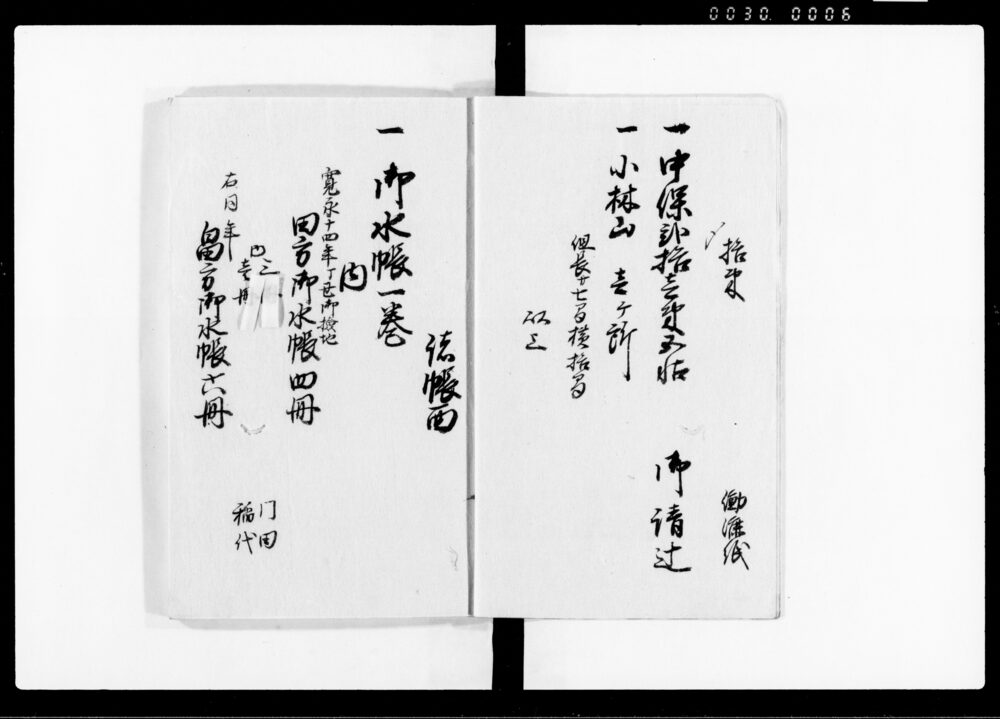 0030.0006
拾束
御請辻
一 小林山 壱ヶ所
但長廿七間横拾間
以上
諸帳面
一 御水帳一巻
内
寛永十四年丁丑御検地
田方御水帳四冊
内三
壱冊
門田
稲代
右同年
畠方御水帳六冊